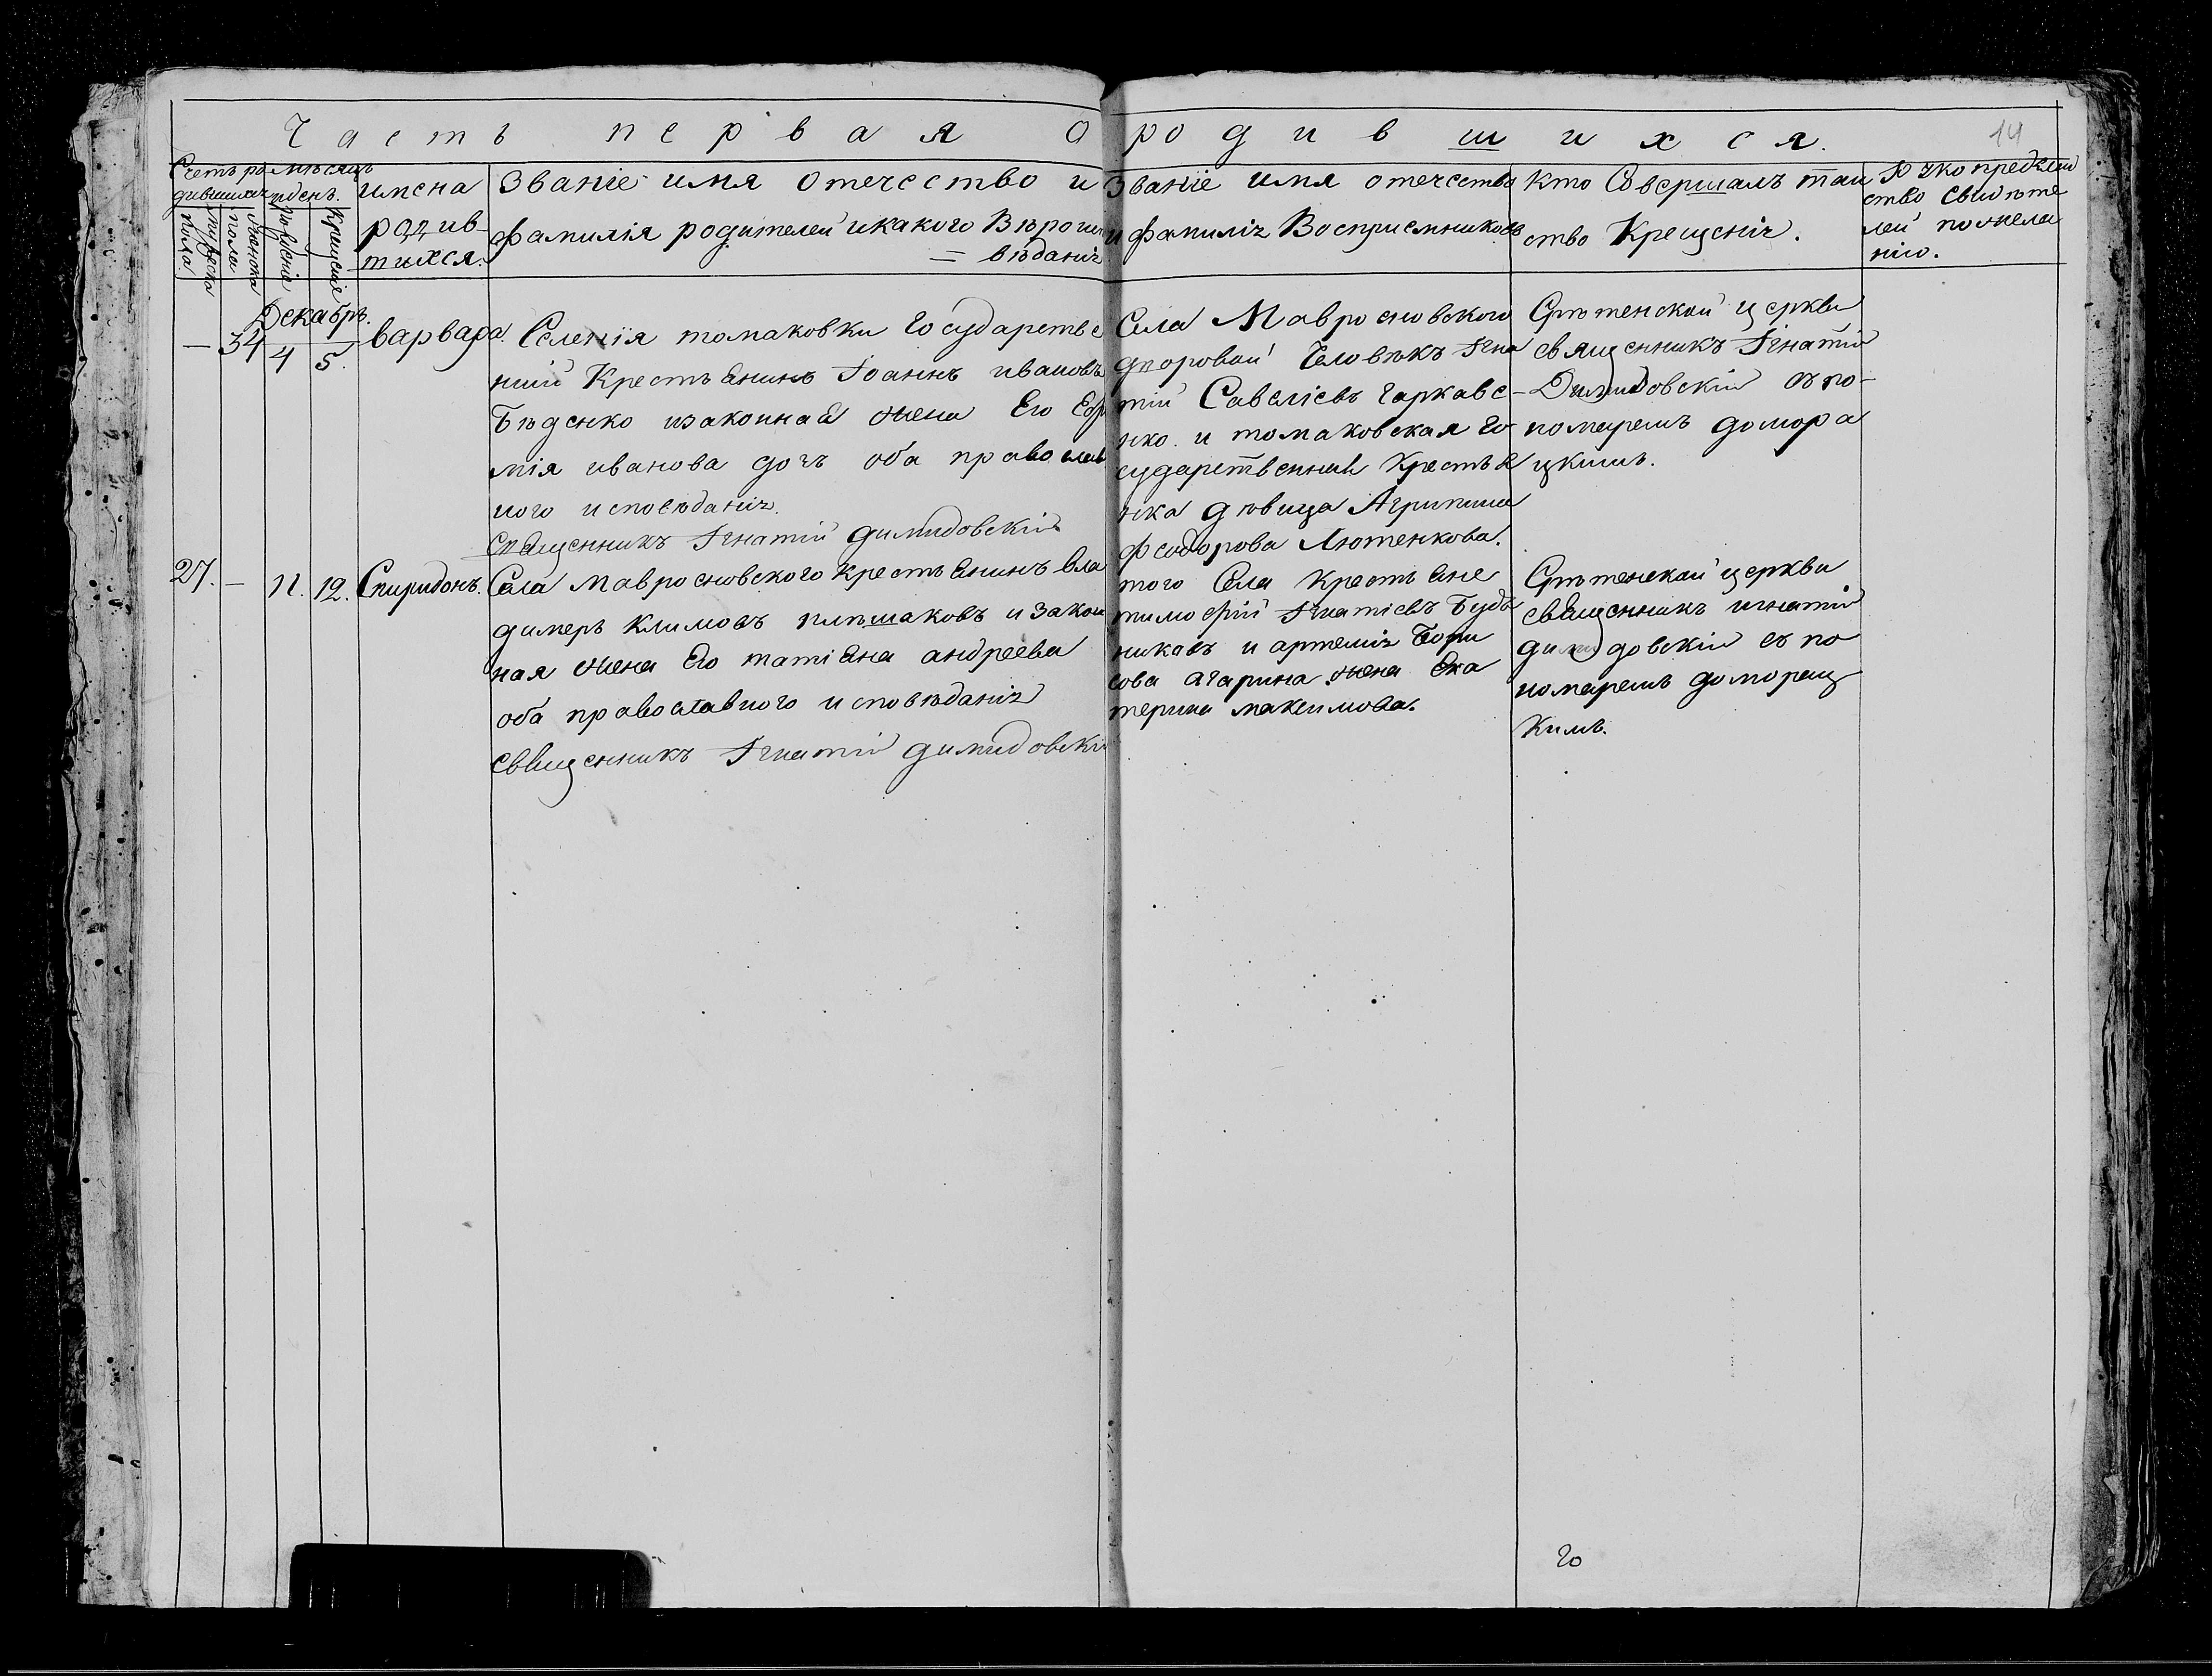 Часть первая О родившихся.
14
Счетъ ро
дившихся
мѣсяцъ
и день.
мужеска
пола
женска
пола
рождение
Крещение
имена
родив-
шихся.
Звание имя отечество и
фамилія родителей и какого Вѣроис
= вѣданія
Звание имя отечество
и фамилія Восприемниковъ
Кто Совершалъ таи
ство Крещенія.
ство свидѣте
лей по жела
нію.
Декабрь.
— 34 4 5. варвара.
Селенія томаковки Государстве
ный Крестьянинъ Іоаннъ ивановъ
Бѣденко изаконная жена Его Евѳи
мія иванова дочь оба православ
ного исповѣданія.
Священникъ Игнатій димидовскій
Села Мавриновского
дворовой Человѣкъ Игна
тій Савелієвъ Гаркаве-
нко. и томаковская Го
сударственная Крестья
нка дѣвица Агрипина
Феодорова Лютенкова.
Срѣтенской церкви
священникъ Игнатій
Димидовскій съ по-
номаремъ домора
цкимъ.
27. — 11. 12. Спиридонъ.
Села Мавриновского крестьянинъ вла
димеръ климовъ плѣшаковъ и закон
ная жена Его татіяна андреева
оба православного исповѣданія
священникъ Игнатій димидовскій
того Села крестьяне
тимофій Игнатієвъ Буд
никовъ и артемія Бори
сова агарина жена Ека
терина максимова.
Срѣтенской церкви
священникъ игнатій
димидовскій съ по
номаремъ домарац
кимъ.
20